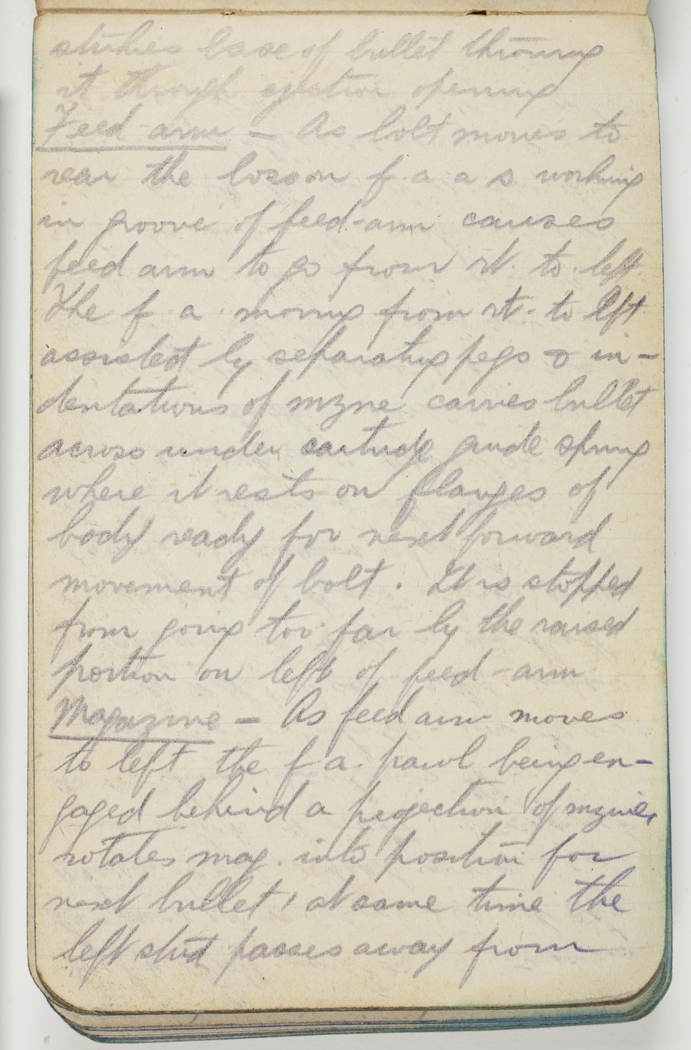 strikes base of bullet throwing
it through ejection opening
Feed-arm - As bolt moves to
rear the boss on f a a s working
in groove of feed-arm causes
feed arm to go from rt. to left
The f. a. moving from rt. to left
assisted by separating pegs & in-
dentations of mzne carries bullet
across under cartridge guide spring
where it rests on flanges of
body ready for next forward
movement of bolt. It is stopped
from going too far by the raised
portion on left of feed-arm
Magazine - As feed arm moves
to left the f. a. pawl being en-
gaged behind a projection of mzne,
rotates mag. into position for
next bullet, at same time the
left stud passes away from